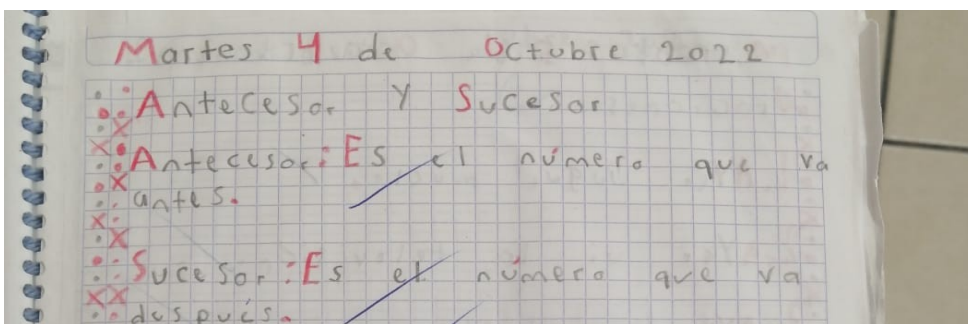 Martes 4 de Octubre 2022
Antecesor Y Sucesor
Antecesor: Es el número que va
antes.
Sucesor: Es el número que va
después.